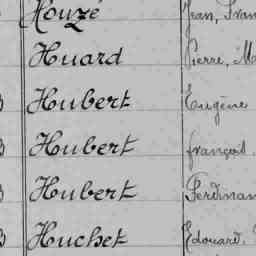 Houzé Jean,
Huard Pierre,
Hubert Eugène
Hubert françois
Hubert
Huchet Edouard,